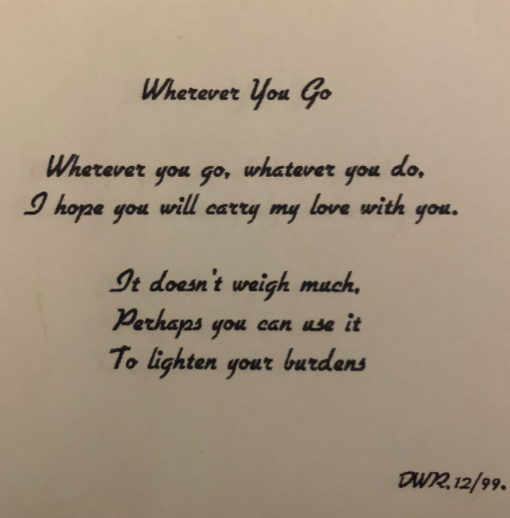 Wherever You Go
Wherever you go, whatever you do,
I hope you will carry my love with you.
It doesn't weigh much,
Perhaps you can use it
To lighten your burdens
DWR.12/99.